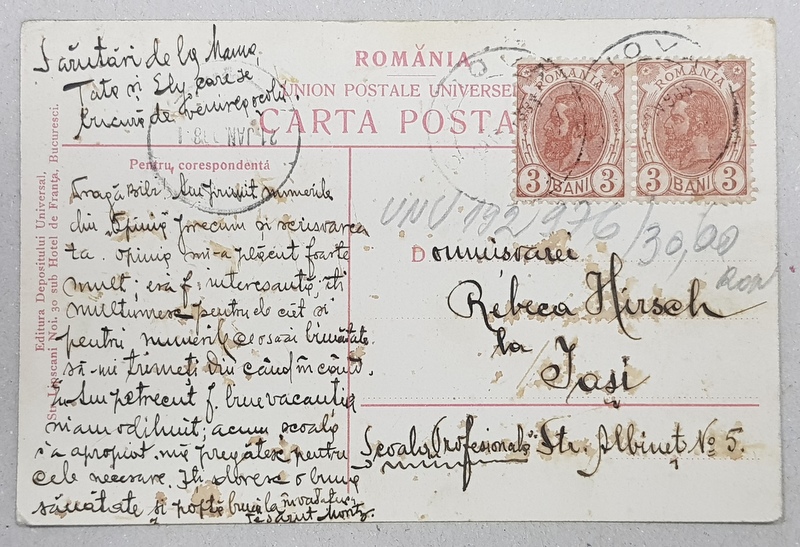 Sărutări de la Mama,
Tata și Ely, care se
bucură de
ROMÂNIA
UNION POSTALE UNIVERSEL
CARTA POSTA
21 JAN
Pentru corespondență
Editura Depositului Universal,
Str. Lipscani Noi, 30 sub Hotel de Franța, Bucuresci.
ROMANIA
3 BANI 3
ROMANIA
3 BANI 3
UNV 132/976/30,00
RON
Dragă Bibi Am primit numerile
din „Opinia" precum și scrisoarea
ta. Opinia mi-a plăcut foarte
mult; era f. interesantă; îți
mulțumesc pentru ele cât și
pentru numerile ce o să ai bunătate
să-mi trimeți din când în când.
Am petrecut f. bine vacanția
m'am odihnit; acum școala
s'a apropiat, mă pregătesc pentru
cele necesare. Îți doresc o bună
sănătate și poftă bună la învățătură
Te sărut Moritz.
Domnișoarei
Rebeca Hirsch
la
Iași
Școala Profesională Str. Albineț No 5.